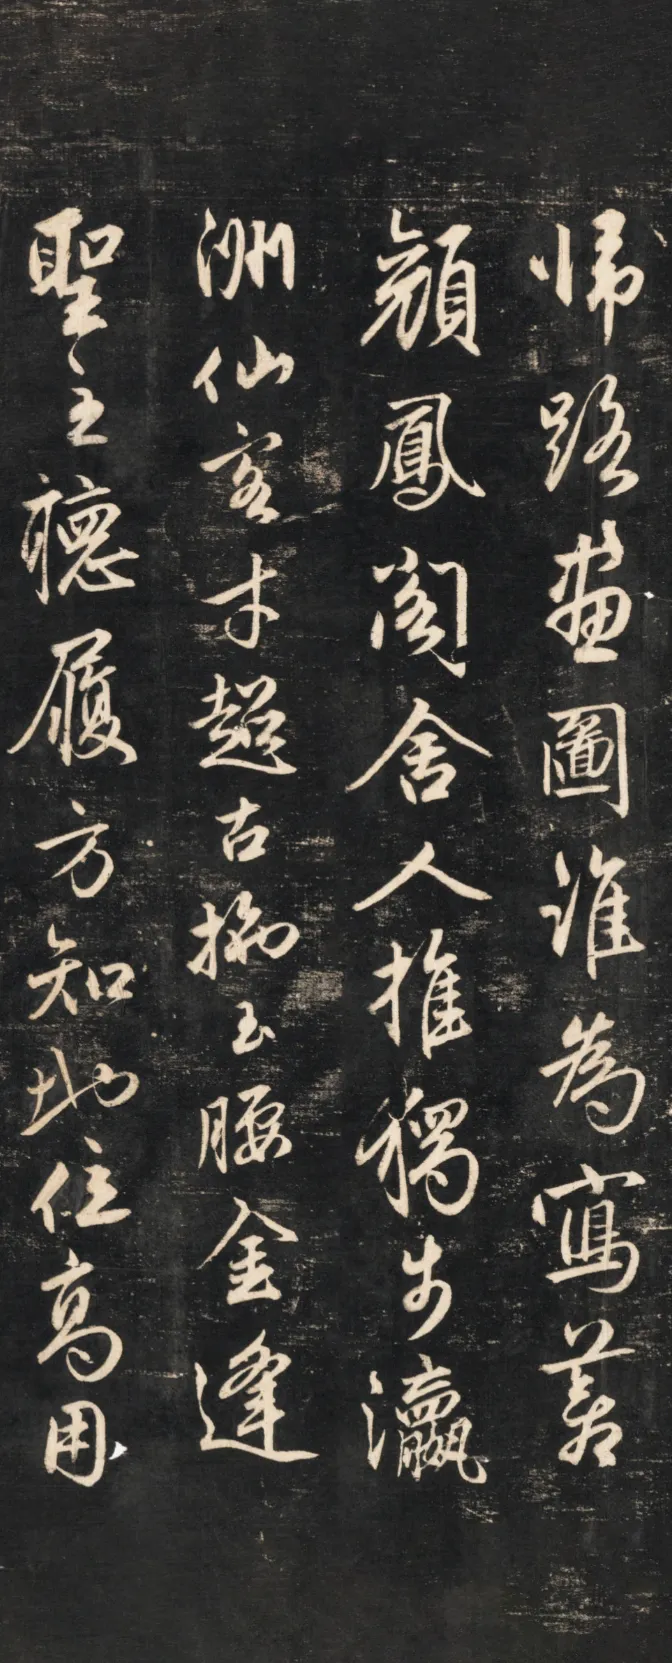 歸路畫圖誰為寫蒼
顏鳳閣舍人推獨步瀛
洲仙客才超古攜玉腰金逢
聖主聽履方知地位高用